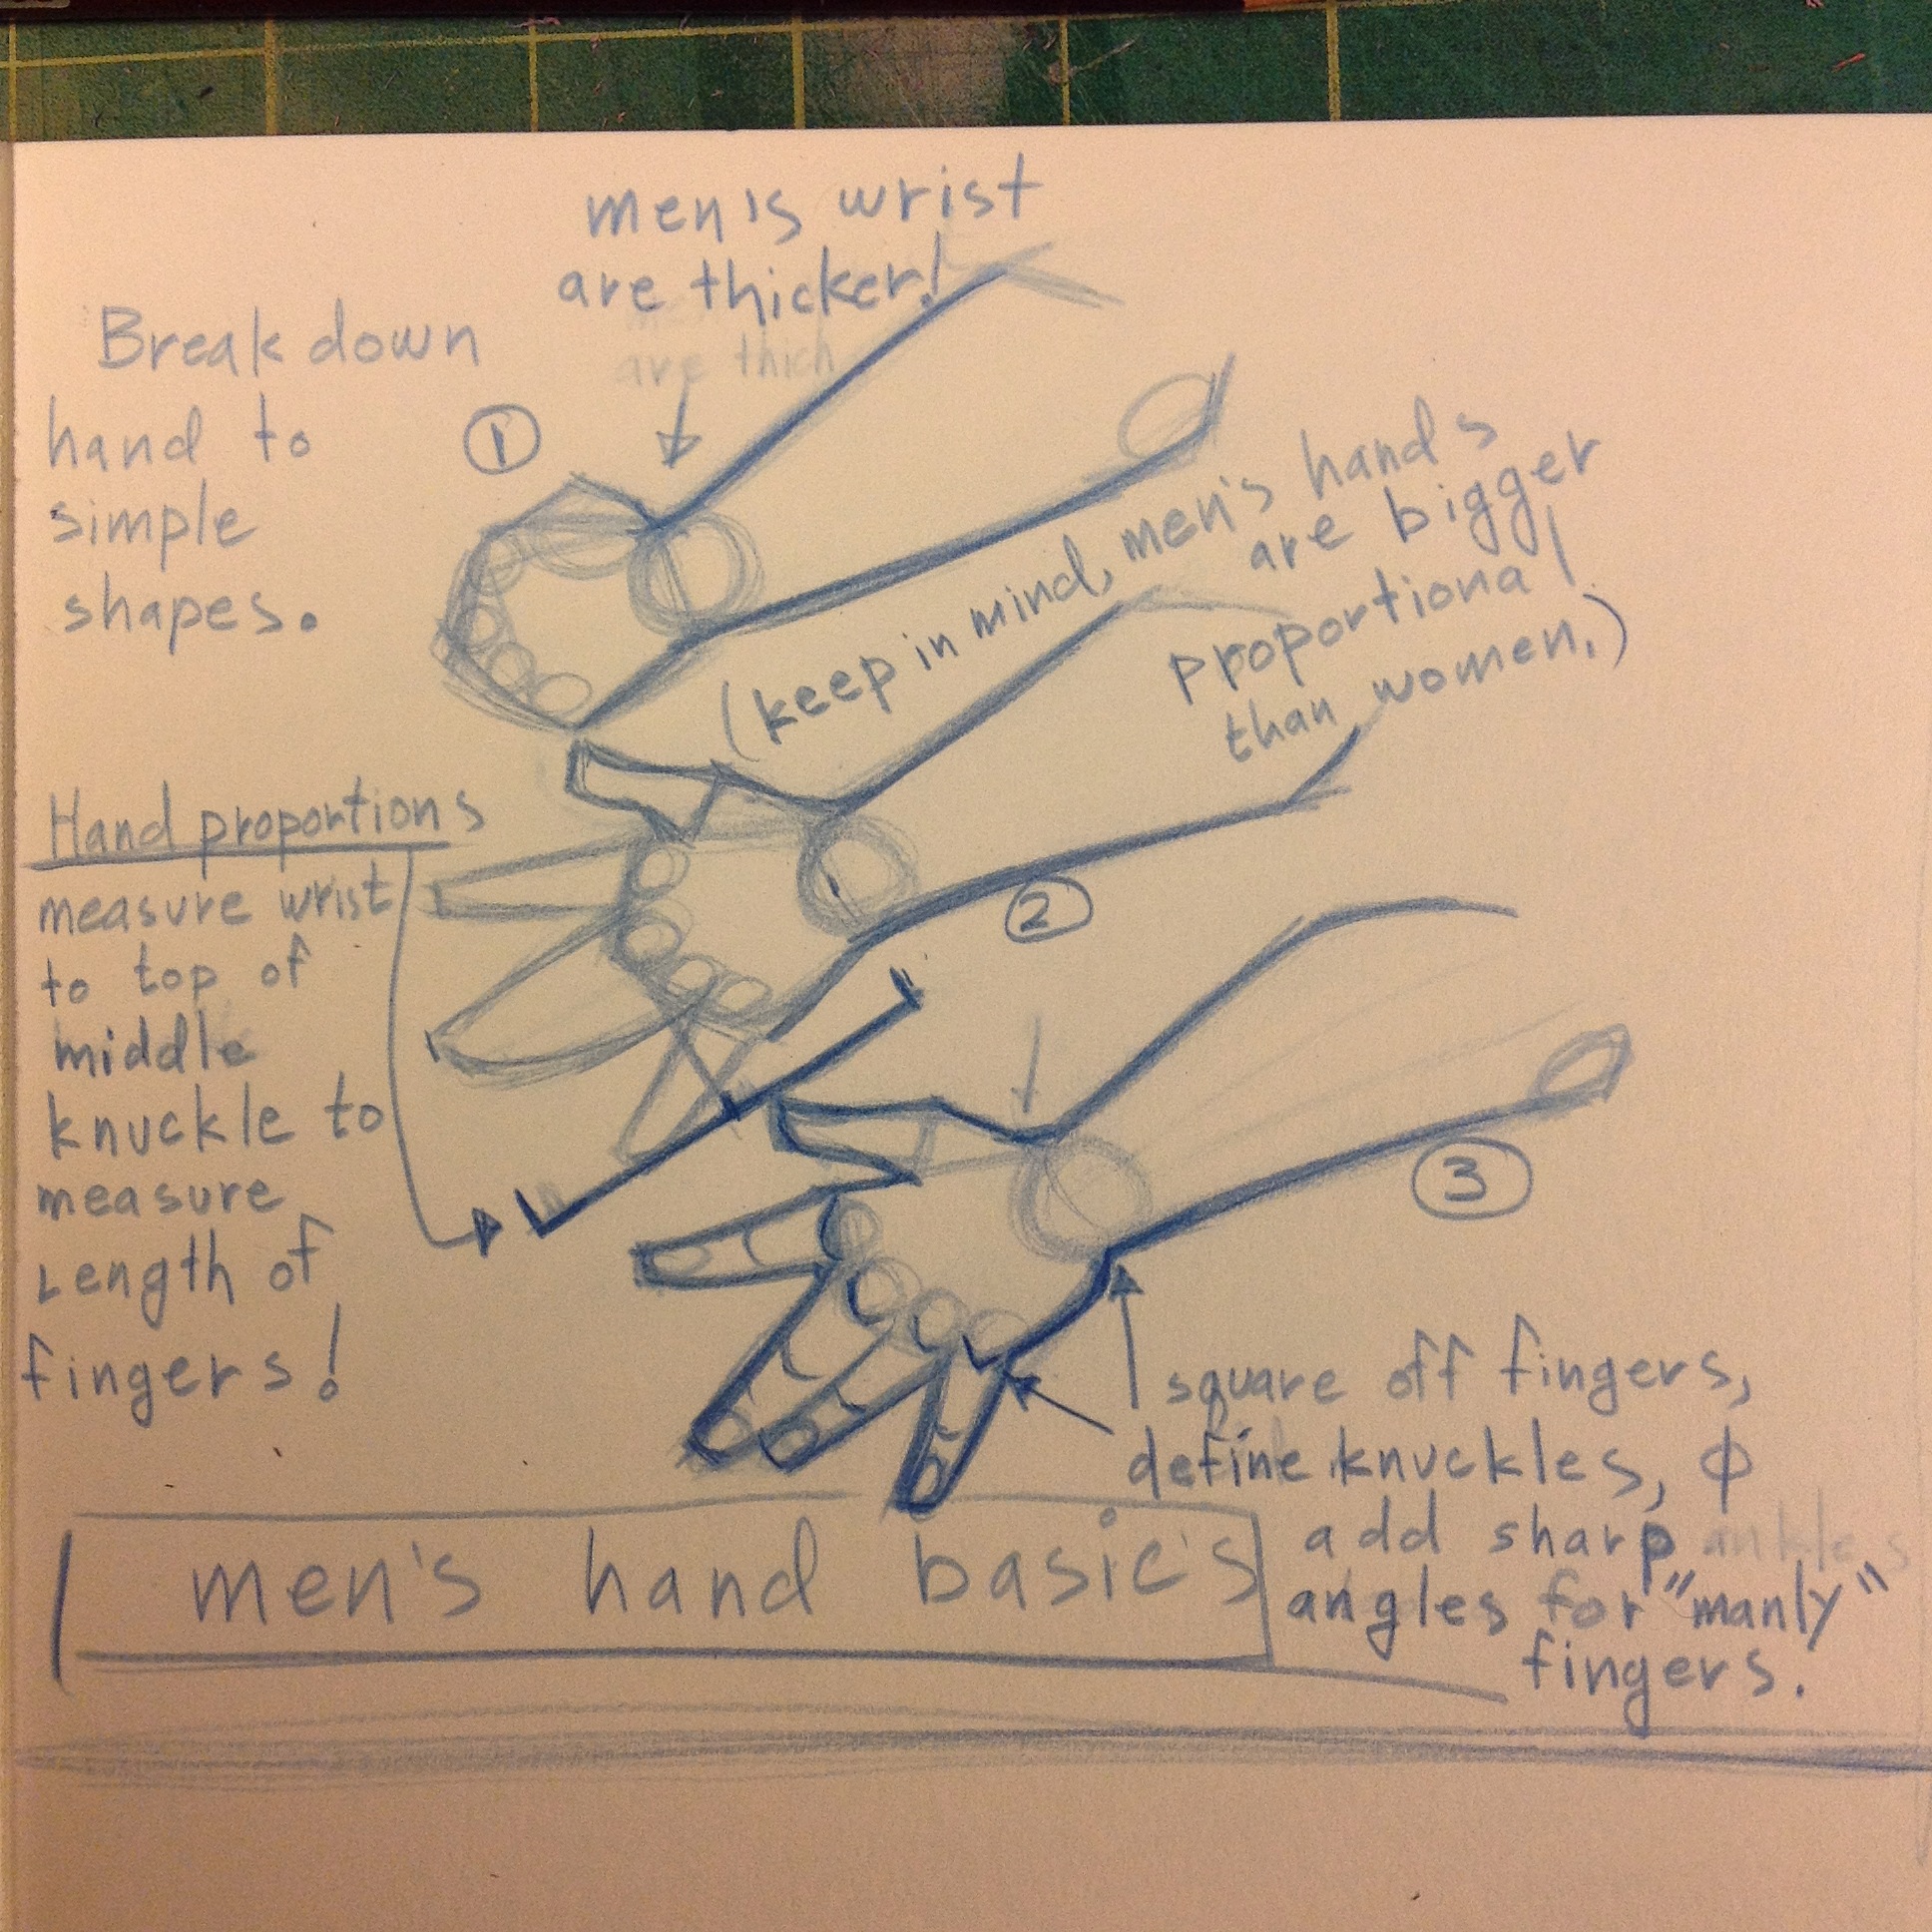 men's wrist
are thicker!
are thich
Break down
hand to
simple
shapes.
1
(keep in mind, men's hands
are bigger
proportional
than women.)
Hand proportions
measure wrist
to top of
middle
knuckle to
measure
Length of
fingers!
2
3
square off fingers,
define knuckles, φ
add sharp ankles
angles for "manly"
fingers.
men's hand basic's